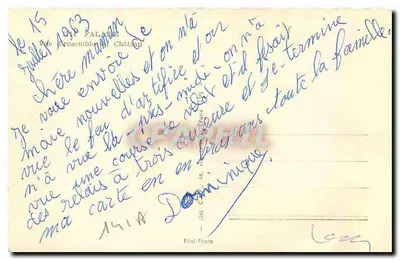 le 15
juillet 1953
FALAISE
Vue d'ensemble du Château
chère maman
je vous envoie de
mais nouvelles et on n'a
vue le feu d'artifice et on
n'a vue la après-midi on n'a
vue une course de velot et il fesait
des relais à trois coureuse et je termine
ma carte en embrassans toute la famille.
Dominique
141A
Réal-Photo